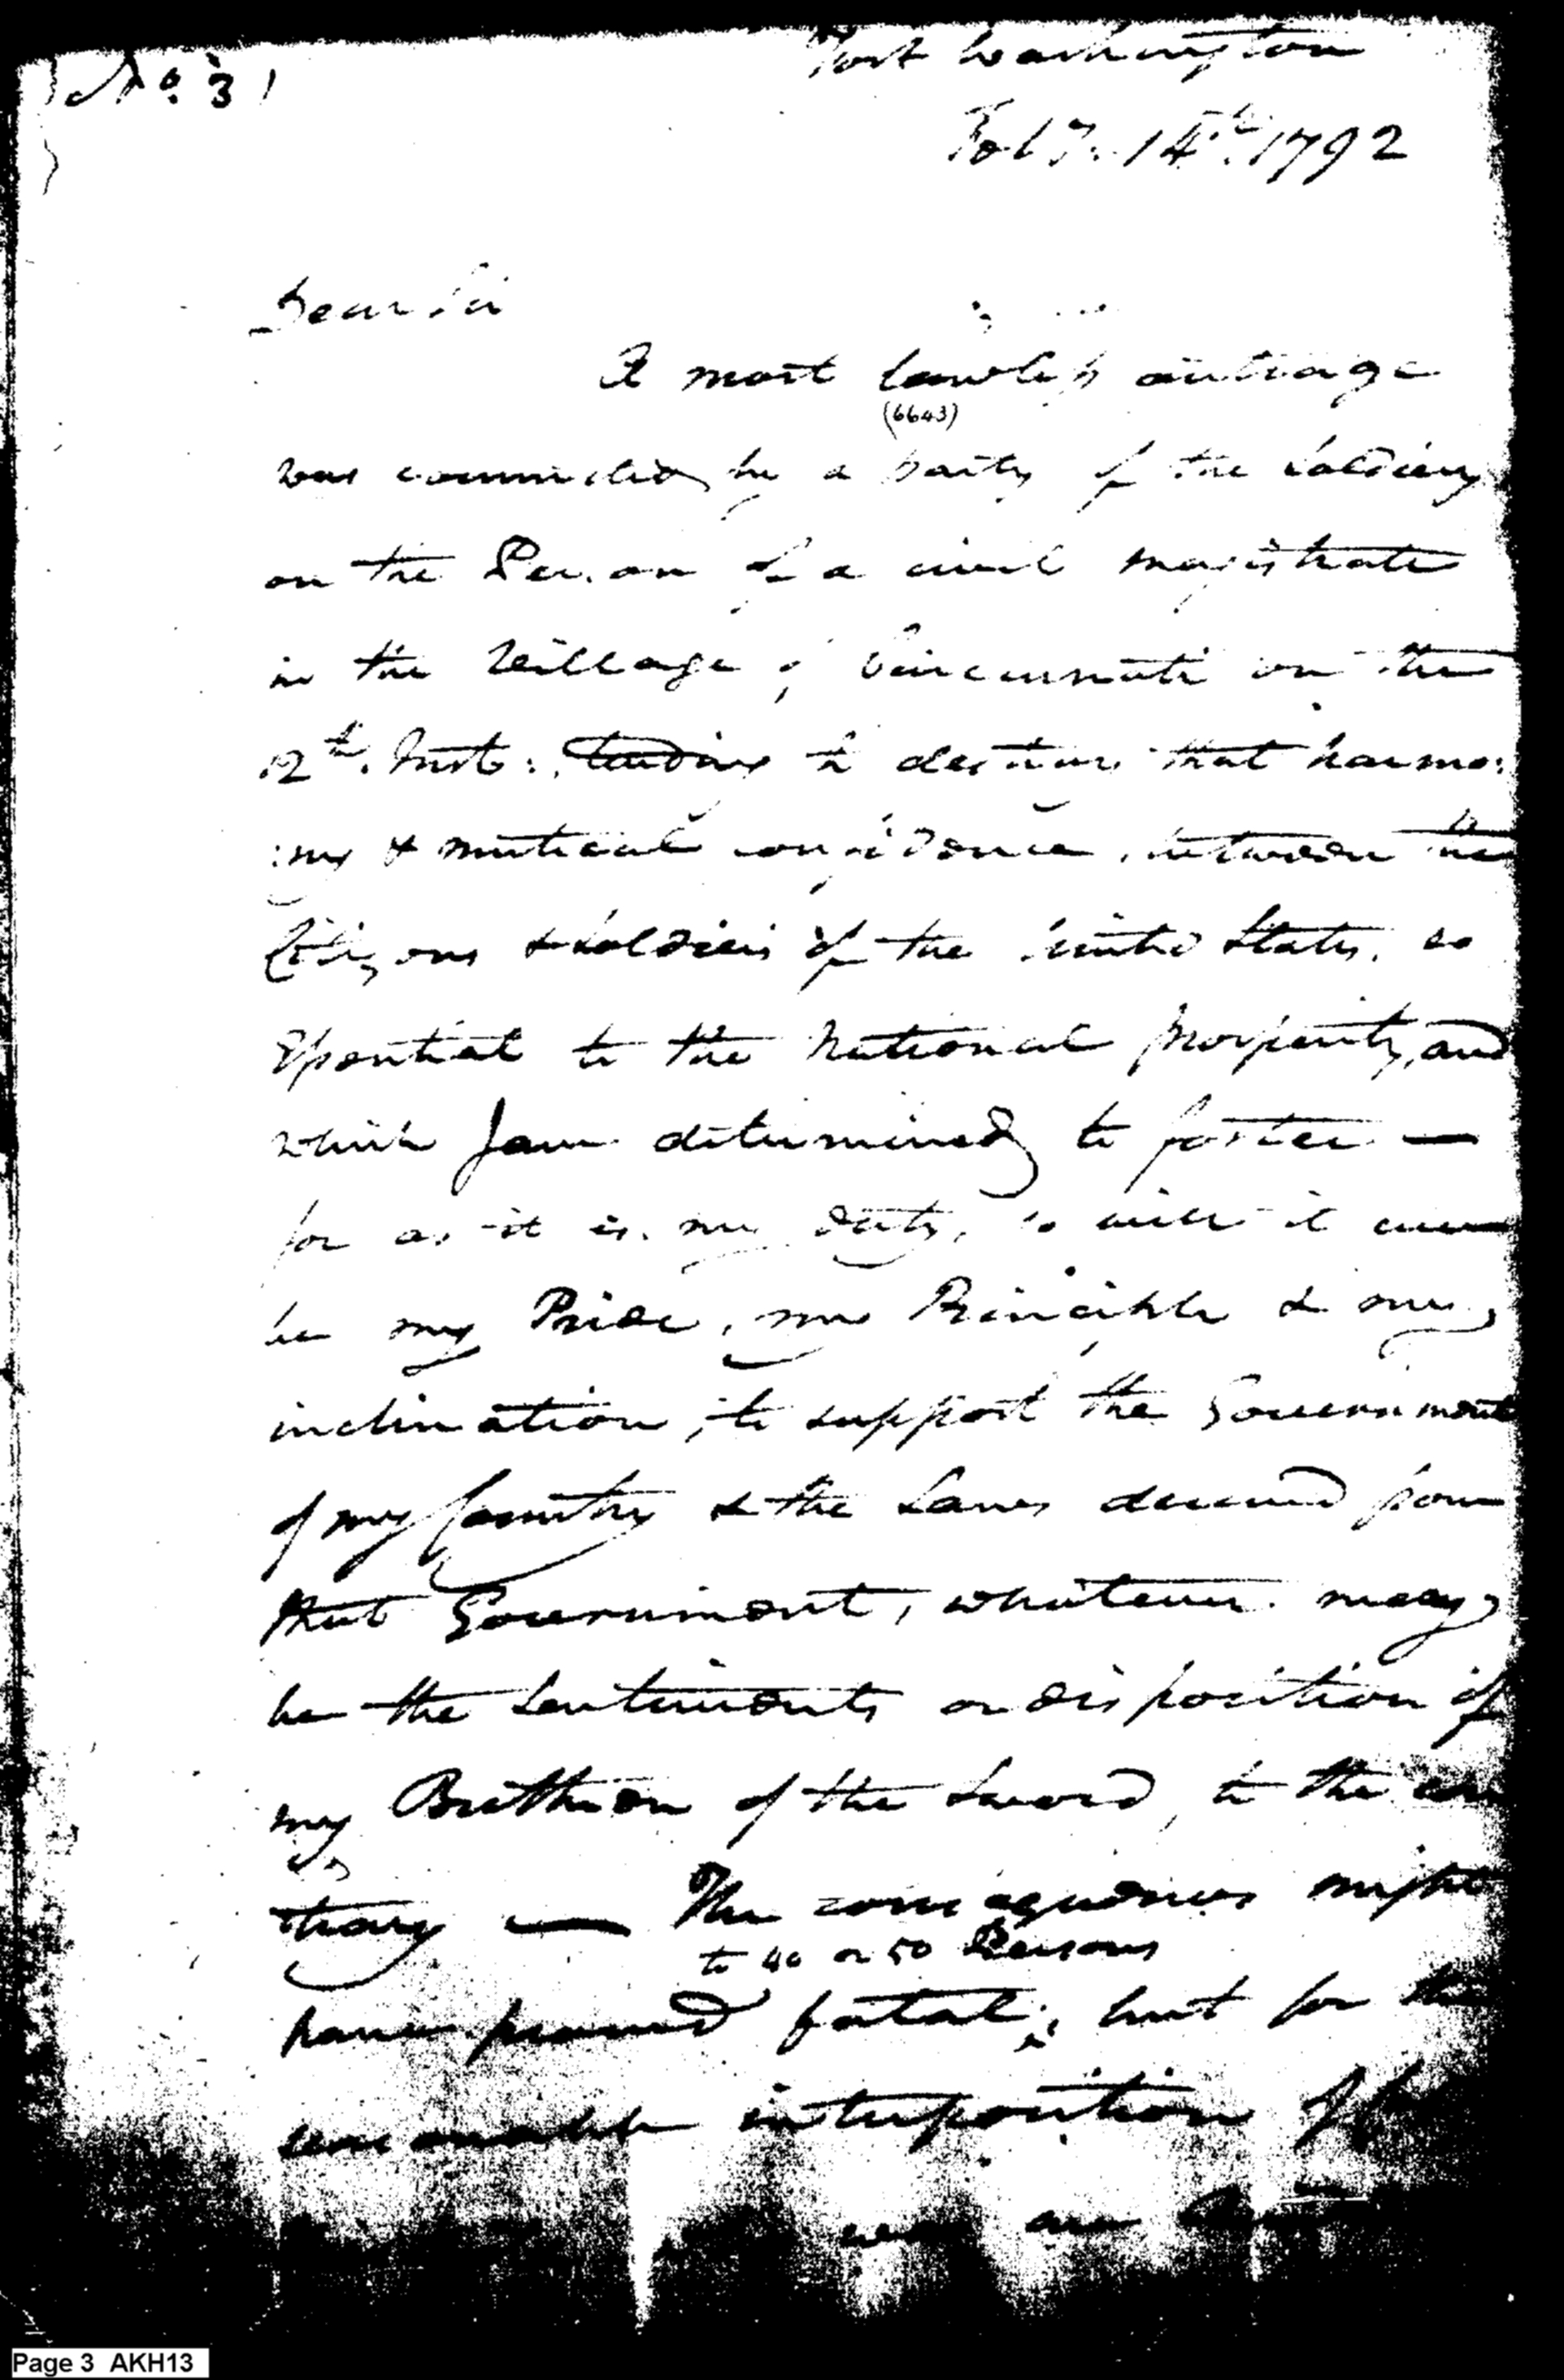 No. 3
Fort Washington
Feby. 14th. 1792
Dear Sir
A most lawless outrage
(6643)
was committed by a party of the Soldiery
on the Person of a civil magistrate
in the Village of Cincinnati on the
12th. Inst:. tending to destroy that harmo:
:ny & mutual confidence, between the
Citizens & Soldiers of the United States, so
essential to the National prosperity, and
which I am determined to foster —
for as it is my duty, so will it ever
be my Pride, my Principle & my
inclination, to support the Government
of my Country & the Laws derived from
that Government, whatever may
be the Sentiments or disposition of
my Brethren of the Sword, to the con
trary — The consequences might
to 40 or 50 Persons
have proved fatal; but for the
seasonable interposition of
Page 3 AKH13